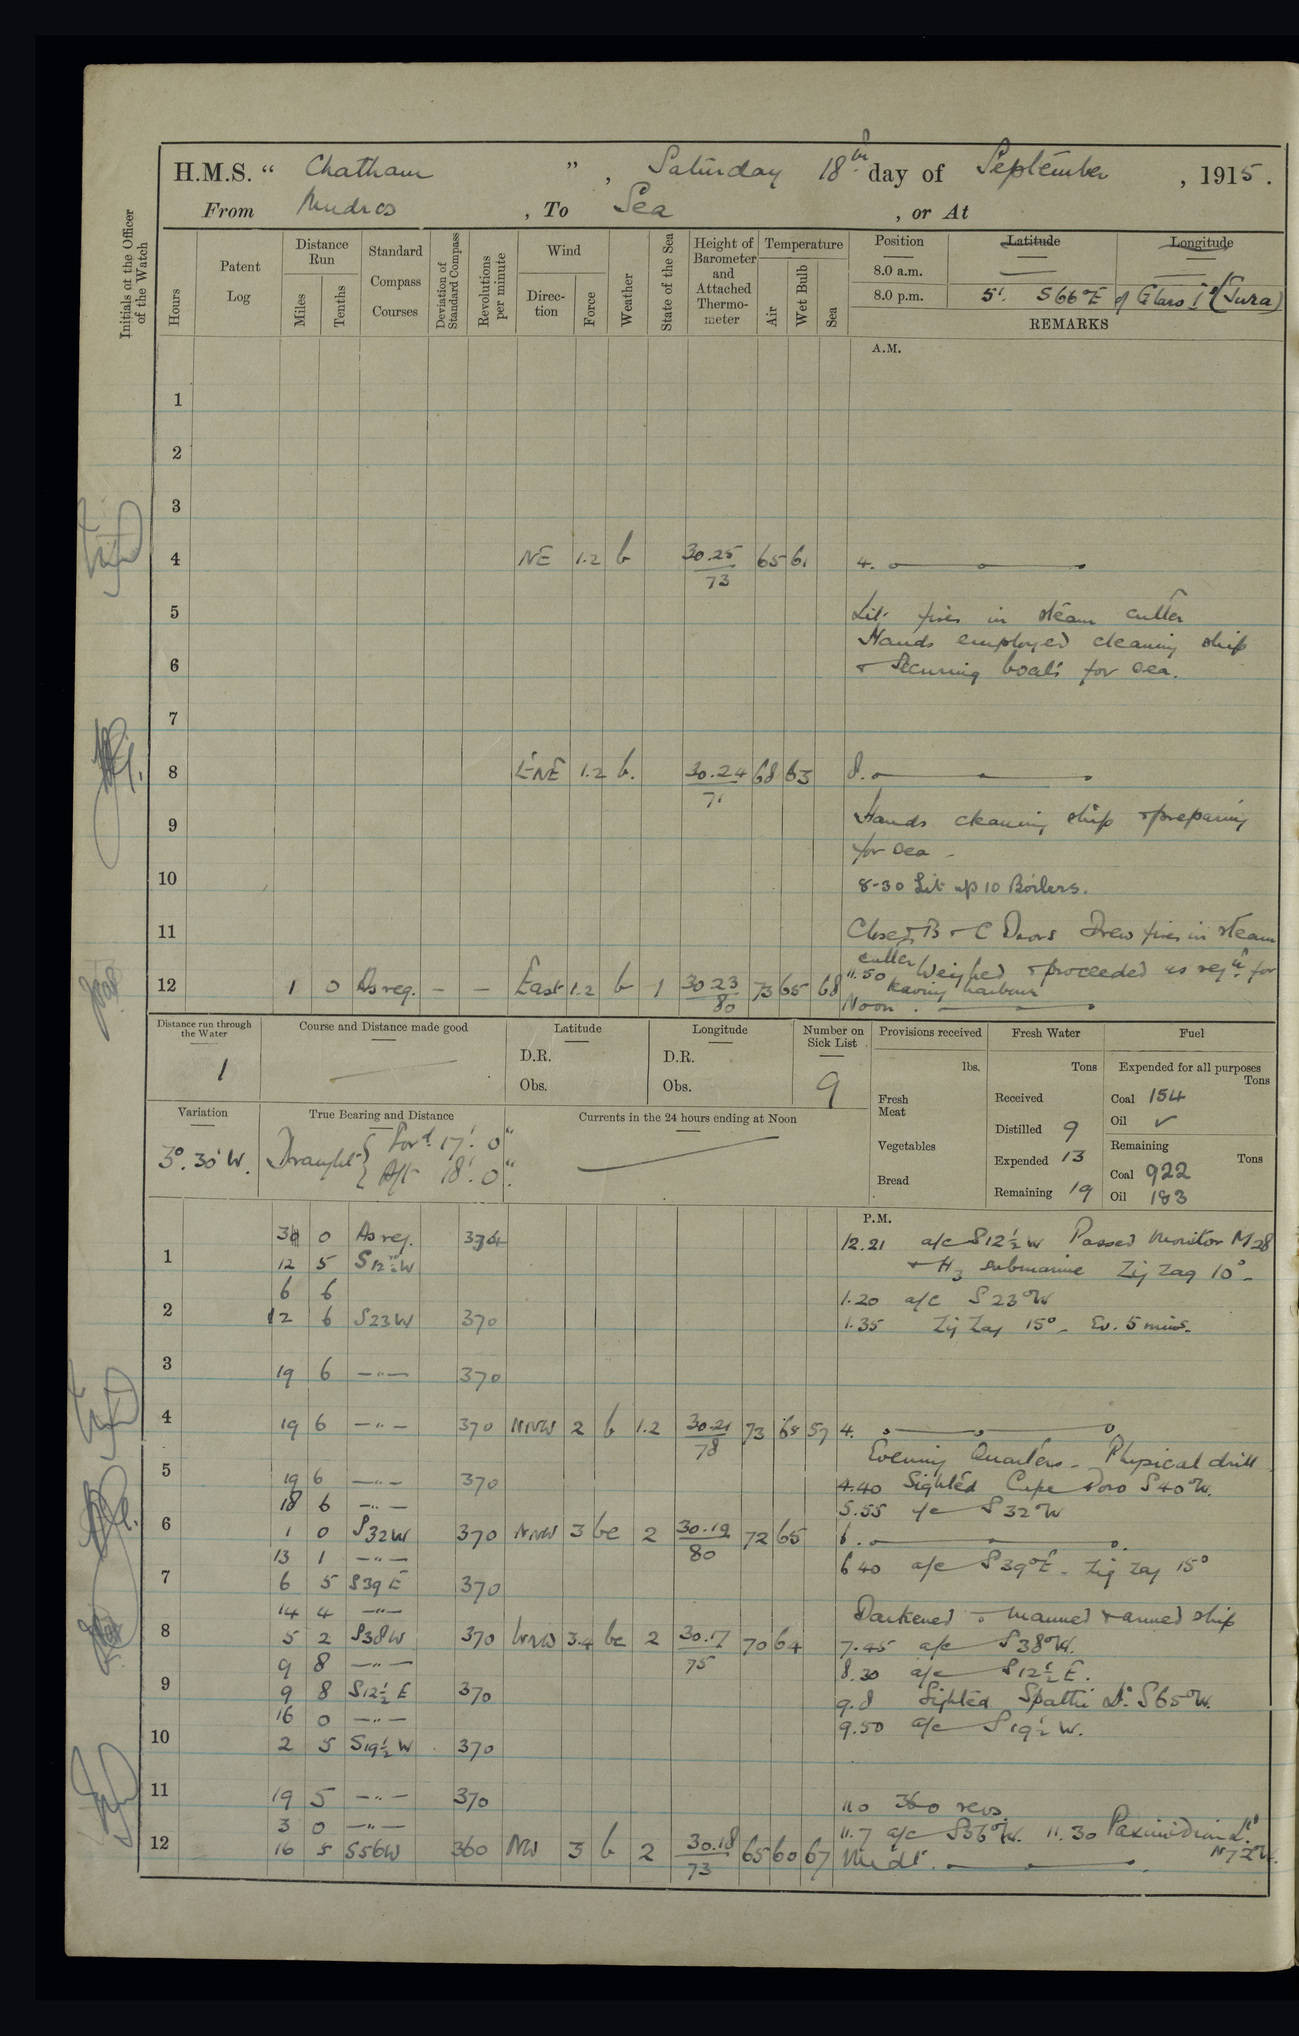 H.M.S. “ Chatham ” , Saturday 18th day of September , 1915.
From Mudros , To Sea , or At
Initials of the Officer of the Watch
Hours
Patent Log
Distance Run
Miles
Tenths
Standard Compass Courses
Deviation of Standard Compass
Revolutions per minute
Wind
Direction
Force
Weather
State of the Sea
Height of Barometer and Attached Thermometer
Temperature
Air
Wet Bulb
Sea
Position Latitude Longitude
8.0 a.m.
8.0 p.m. 5'. S66°E of Glaro Id (Jura)
REMARKS
A.M.
1
2
3
4 NE 1.2 b 30.25 65 61 4.
73
5 Lit fires in steam cutter
Hands employed cleaning ship
6 & Securing boats for sea.
7
8 ENE 1.2 b. 30.24 68 63 8.
71
9 Hands cleaning ship & preparing
for sea -
10 8-30 Lit up 10 Boilers.
11 Closed B & C Doors Drew fires in steam
cutter
11.50 Weighed & proceeded as reqd. for
leaving harbour
12 1 0 As req. - - East 1.2 b 1 30 23 73 65 68 Noon.
80
Distance run through the Water
1
Course and Distance made good
Latitude
D.R.
Obs.
Longitude
D.R.
Obs.
Number on Sick List
9
Provisions received
lbs.
Fresh Meat
Vegetables
Bread
Fresh Water
Tons
Received
Distilled 9
Expended 13
Remaining 19
Fuel
Expended for all purposes
Tons
Coal 154
Oil ✓
Remaining
Tons
Coal 922
Oil 183
Variation
3°. 30' W.
True Bearing and Distance
Draught { Ford. 17'. 0"
Aft 18'. 0".
Currents in the 24 hours ending at Noon
P.M.
0 As req. 12.21 a/c S12½W Passed Monitor M28
1 12 5 S12½W & H3 submarine Zig Zag 10° -
6 6 1.20 a/c S23°W
2 12 6 S23W 370 1.35 Zig Zag 15° - Ev. 5 mins.
3 19 6 —"— 370
4 19 6 —"— 370 NNW 2 b 1.2 30.21 73 68 57 4.
78
Evening Quarters - Physical drill
5 19 6 —"— 370 4.40 Sighted Cape Doro S40°W.
18 6 —"— 5.55 a/c S32°W
6 1 0 S32W 370 NNW 3 bc 2 30.19 72 65 6.
80
13 1 —"— 6 40 a/c S39°E - Zig Zag 15°
7 6 5 S39E 370
14 4 —"— Darkened & manned & armed ship
8 5 2 S38W 370 WNW 3.4 bc 2 30.17 70 64 7.45 a/c S38°W.
75
9 8 —"— 8.30 a/c S12½E.
9 9 8 S12½E 370 9.8 Sighted Spathi Lt. S65°W.
16 0 —"— 9.50 a/c S19½W.
10 2 5 S19½W 370
11 19 5 —"— 370 11.0 360 revs.
3 0 —"— 11.7 a/c S56°W. 11.30 Lt.
N72°W.
12 16 5 S56W 360 NW 3 b 2 30.18 65 60 67 Midt.
73